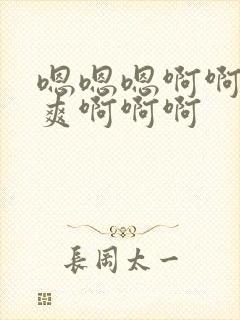 嗯嗯嗯啊啊
爽啊啊啊
長周太一